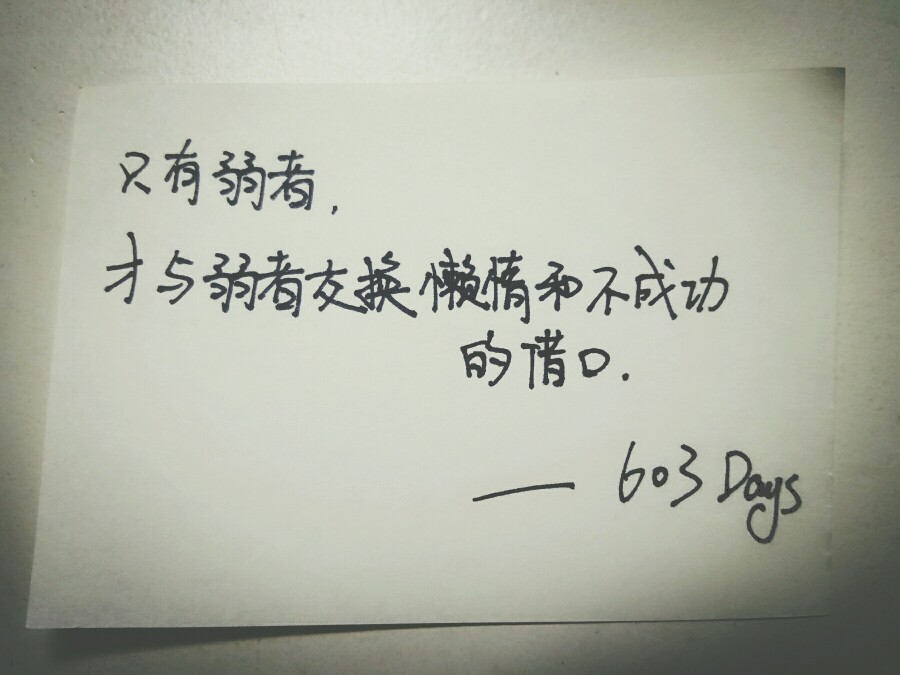 只有弱者,
才与弱者交换懒惰和不成功
的借口.
— 603 Days